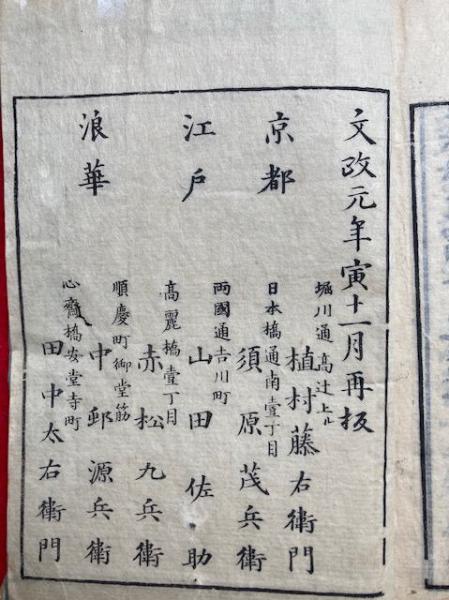 文政元年寅十一月再板
京都
堀川通高辻上ル
植村藤右衛門
江戸
日本橋通南壹丁目
須原茂兵衛
両國通吉川町
山田佐助
浪華
高麗橋壹丁目
赤松九兵衛
順慶町御堂筋
中邨源兵衛
心齋橋安堂寺町
田中太右衛門